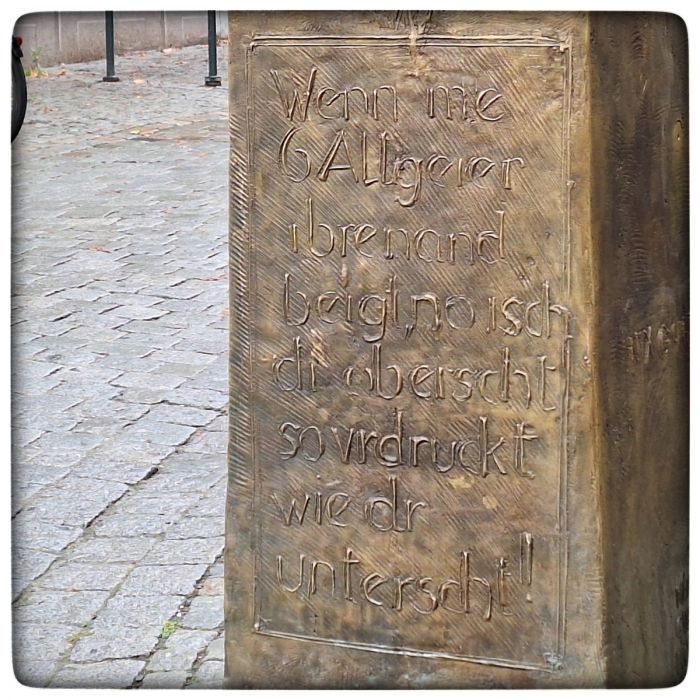 Wenn me
6 Allgeier
ibrenand
beigt, no isch
di oberscht
so vrdruckt
wie dr
unterscht!